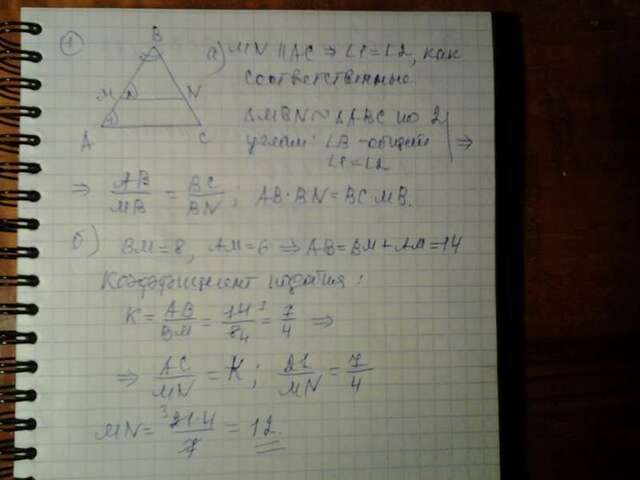 1
B
M 2 N
1
A C
а) MN || AC ⇒ ∠1=∠2, как
соответственные.
ΔMBN ~ ΔABC по 2
углам: ∠B - общий
∠1=∠2 ⇒
⇒ AB/MB = BC/BN; AB·BN=BC·MB.
б) BM=8, AM=6 ⇒ AB=BM+AM=14
Коэффициент подобия:
K = AB/BM = 14/8 = 7/4 ⇒
⇒ AC/MN = K; 21/MN = 7/4
MN = 21·4/7 = 12.